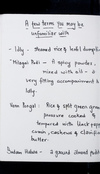 A few terms you may be
unfamiliar with
- Idly - steamed rice & lentil dumpling
- Milagai Podi - A spicy powder,
mixed with oil - a
very fitting accompaniment to
Idly.
Ven Pongal : Rice & split green gram
pressure cooked &
tempered with black pepper,
cumin, cashews & clarified
butter.
Badam Halwa : a ground almond pudding